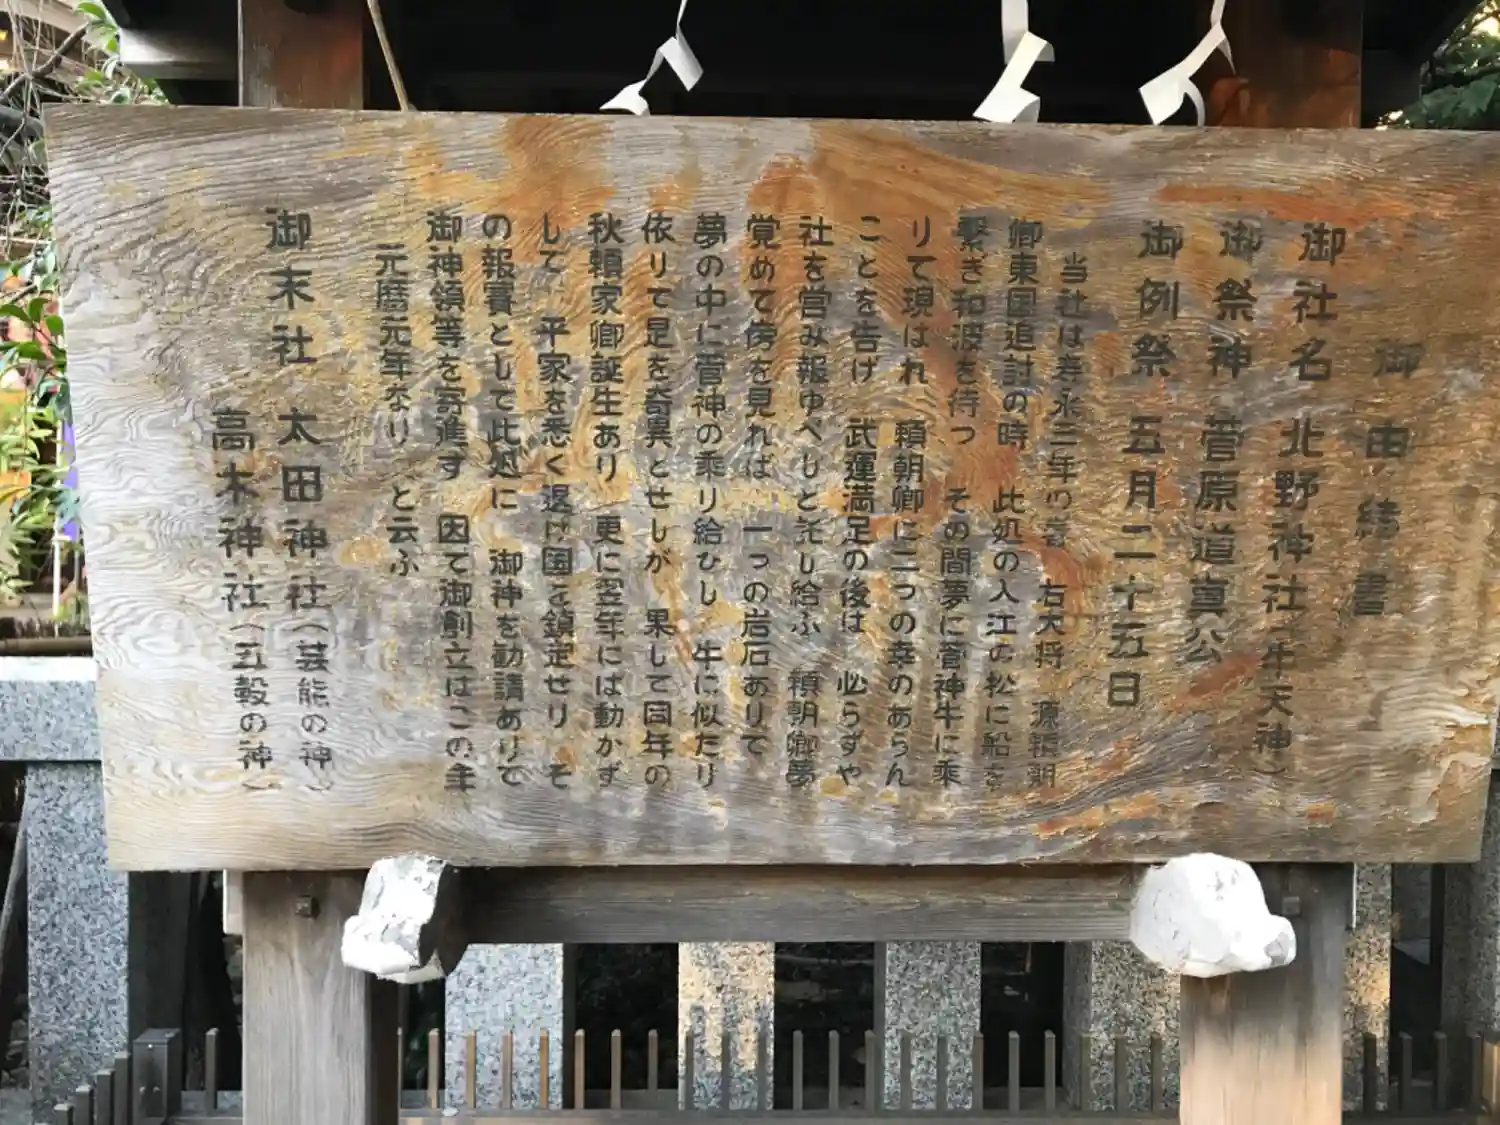 御由緒書
御社名 北野神社(牛天神)
御祭神 菅原道真公
御例祭 五月二十五日
当社は寿永三年の 右大将 源頼朝
卿東国追討の時 此処の入江の松に船を
繋ぎ和波を待つ その間夢に菅神牛に乘
りて現はれ 頼朝卿に二つの幸のあらん
ことを告げ 武運満足の後は 必らずや
社を営み報ゆべしと託し給ふ 頼朝卿夢
覚めて傍を見れば 一つの岩石ありて
夢の中に菅神の乗り給ひし 牛に似たり
依りて是を奇異とせしが 果して同年の
秋頼家卿誕生あり 更に翌年には動かず
して 平家を悉く退け国を鎮定せり そ
の報賽として此処に 御神を勧請ありて
御神領等を寄進す 因て御創立はこの年
元暦元年なり と云ふ
御末社 太田神社(芸能の神)
高木神社(五穀の神)